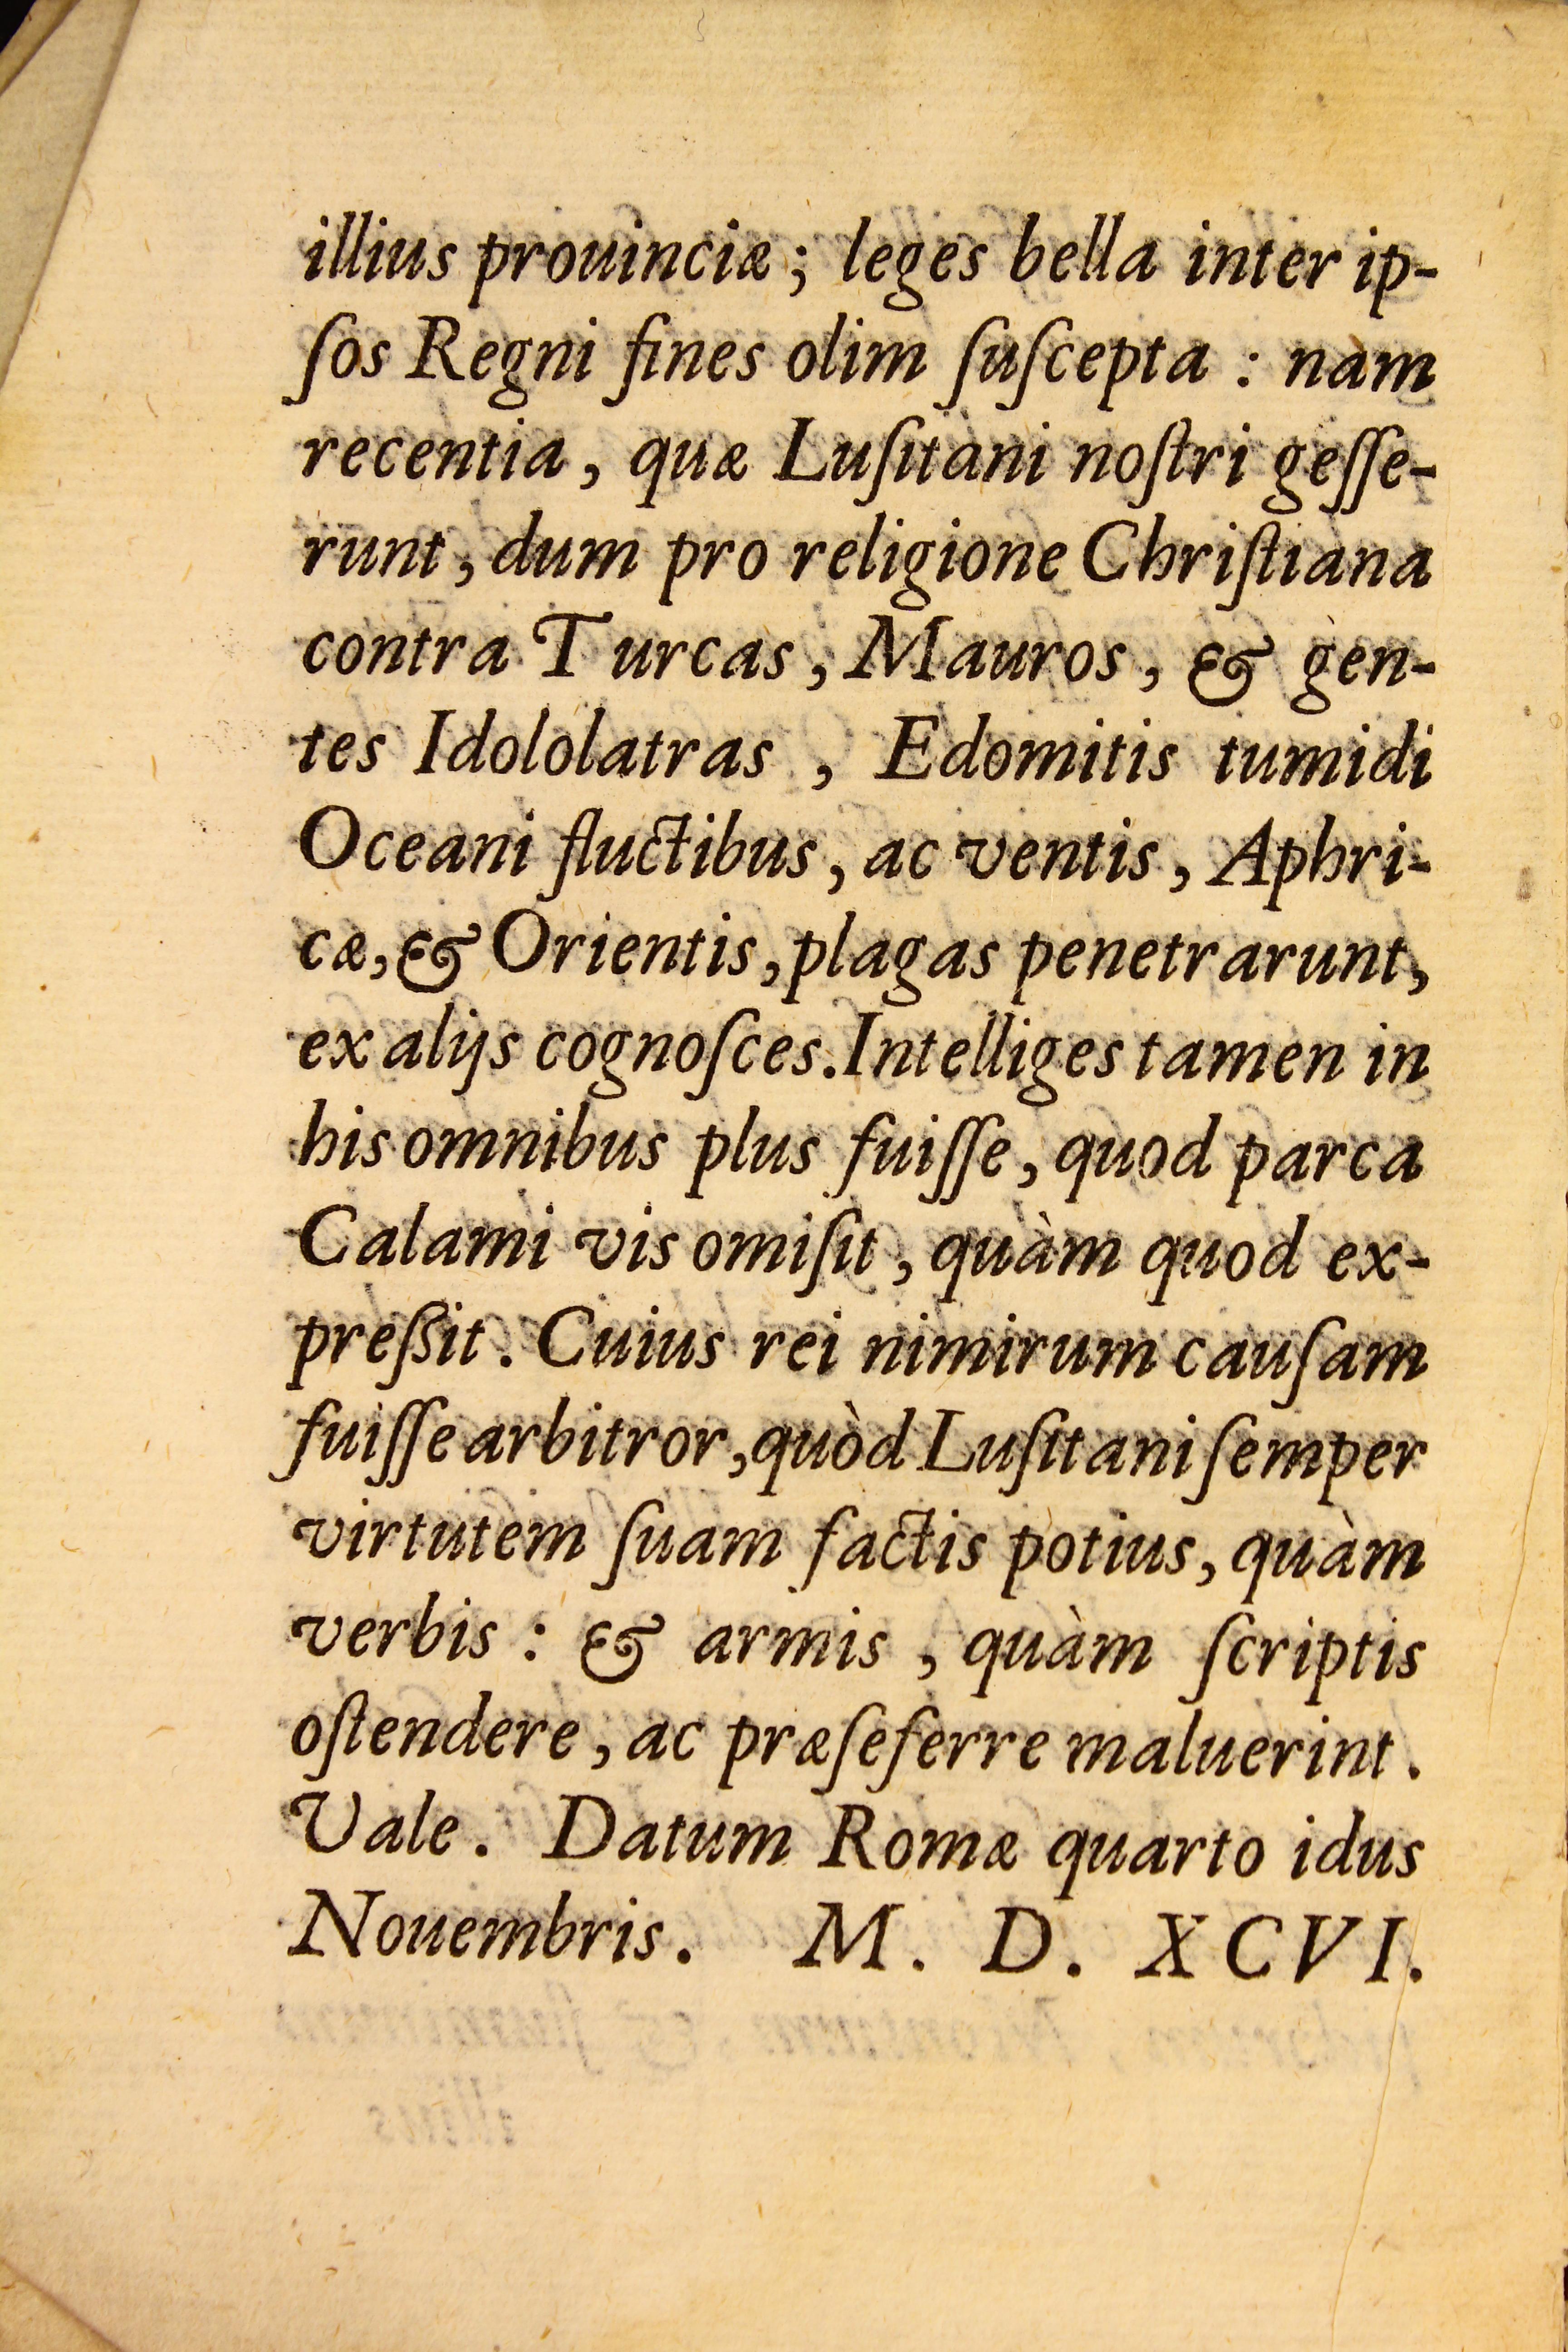 illius prouinciæ; leges bella inter ip-
ſos Regni fines olim ſuſcepta : nàm
recentia, quæ Luſitani noſtri geſſe-
runt, dum pro religione Chriſtiana
contra Turcas, Mauros, & gen-
tes Idololatras , Edomitis tumidi
Oceani fluctibus, ac ventis, Aphri-
cæ, & Orientis, plagas penetrarunt,
ex alijs cognoſces. Intelliges tamen in
his omnibus plus fuiſſe, quod parca
Calami vis omiſit, quàm quod ex-
preſsit. Cuius rei nimirum cauſam
fuiſſe arbitror, quòd Luſitani ſemper
virtutem ſuam factis potius, quàm
verbis : & armis , quàm ſcriptis
oſtendere, ac præſeferre maluerint.
Vale. Datum Romæ quarto idus
Nouembris. M. D. XCVI.